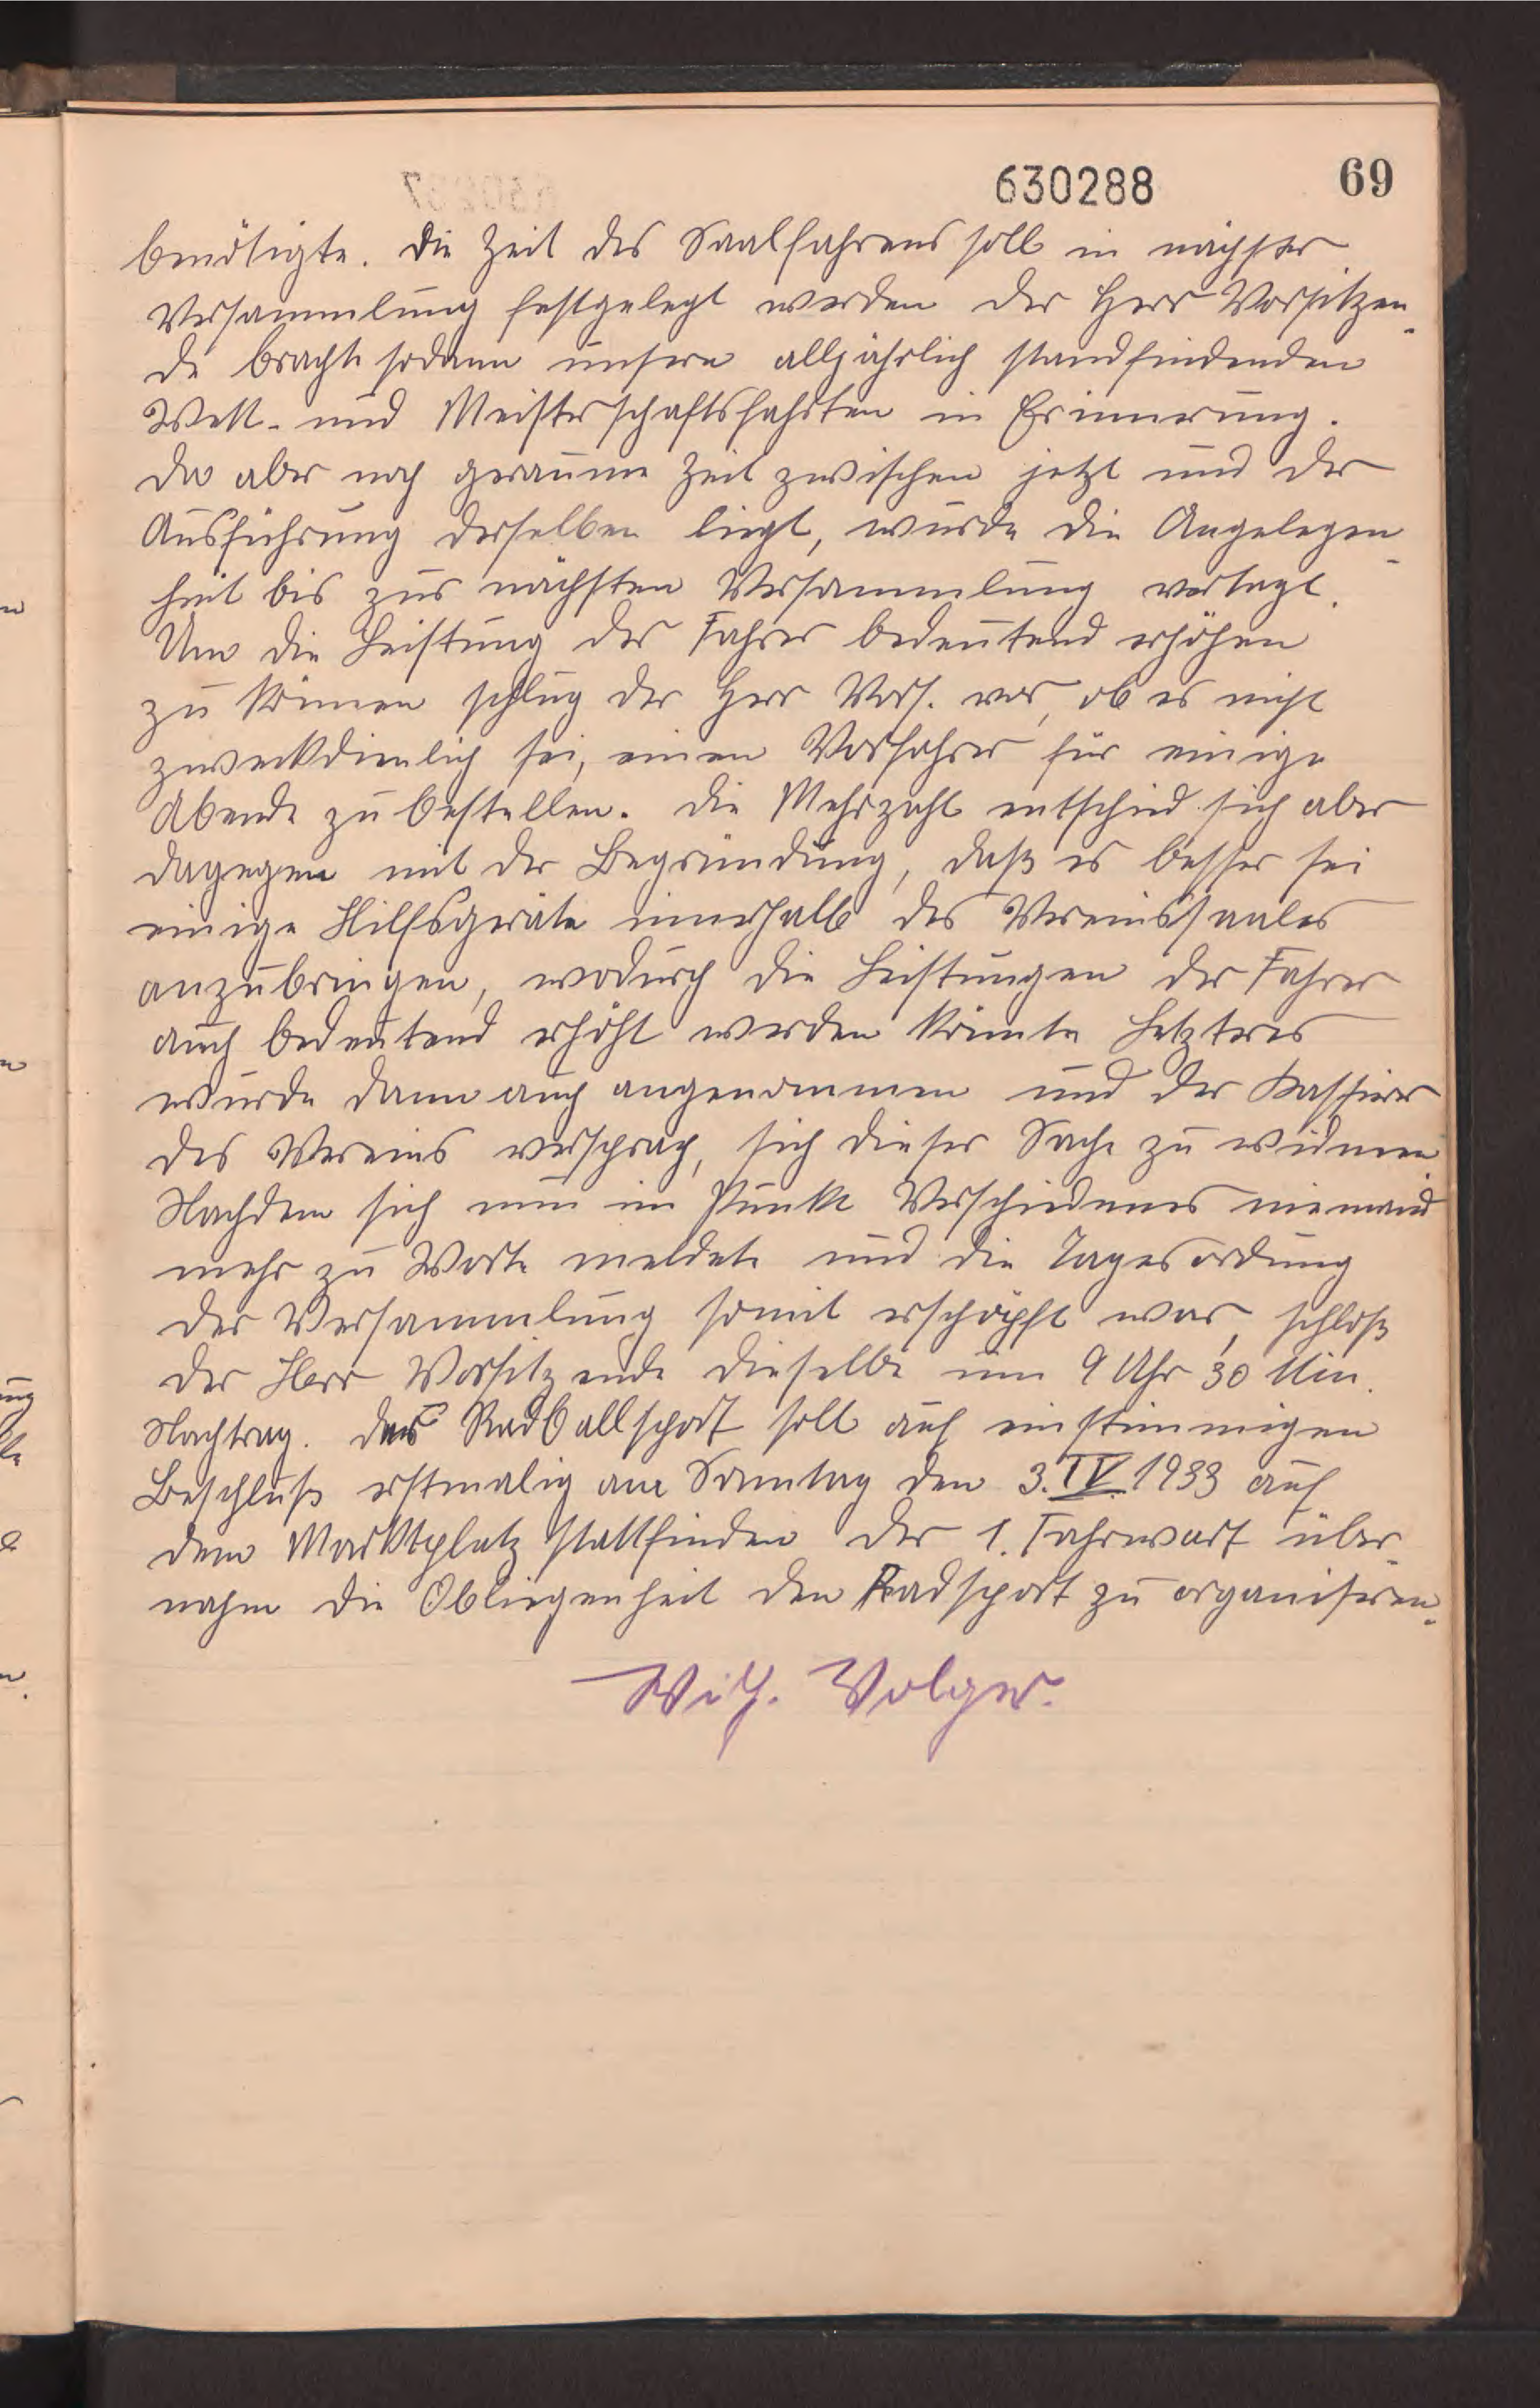 630288 69
benötigte. Die Zeit des Saalfahrens soll in nächster
Versammlung festgelegt werden der Herr Vorsitzen-
de brachte sodann unsere alljährlich standfindenden
Wett- und Meisterschaftsfahrten in Erinnerung.
Da aber noch geraume Zeit zwischen jetzt und der
Ausführung derselben liegt, wurde die Angelegen-
heit bis zur nächsten Versammlung vertagt.
Um die Leistung der Fahrer bedeutend erhöhen
zu können schlug der Herr Vors. vor, ob es nicht
zweckdienlich sei, einen Vorfahrer für einige
Abende zu bestellen. Die Mehrzahl entschied sich aber
dagegen mit der Begründung, daß es besser sei
einige Hilfsgeräte innerhalb des Vereinssaales
anzubringen, wodurch die Leistungen der Fahrer
auch bedeutend erhöht werden könnte Letzteres
wurde dann auch angenommen und der Kassierer
des Vereins versprach, sich dieser Sache zu widmen
Nachdem sich nun im Punkte Verschiedenes niemand
mehr zu Worte meldete und die Tagesordung
der Versammlung somit erschöpft war, schloß
der Herr Vorsitzende dieselbe um 9 Uhr 30 Min.
Nachtrag. Der Radballsport soll auf einstimmigen
Beschluß erstmalig am Sonntag den 3. IV. 1933 auf
dem Marktplatz stattfinden der 1. Fahrwart über-
nahm die Obliegenheit den Radsport zu organisiren.
Wilh. Volger.